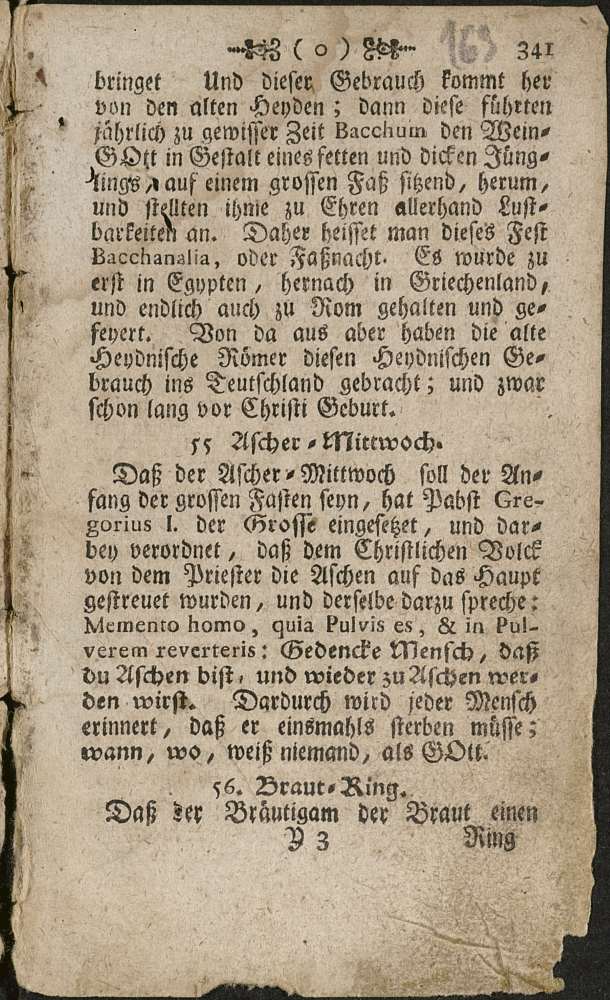 ( 0 ) 163 341
bringet Und dieser Gebrauch kommt her
von den alten Heyden ; dann diese führten
jährlich zu gewisser Zeit Bacchum den Wein-
GOtt in Gestalt eines fetten und dicken Jüng-
lings, auf einem grossen Faß sitzend, herum,
und stellten ihme zu Ehren allerhand Lust-
barkeiten an. Daher heisset man dieses Fest
Bacchanalia, oder Faßnacht. Es wurde zu
erst in Egypten, hernach in Griechenland,
und endlich auch zu Rom gehalten und ge-
feyert. Von da aus aber haben die alte
Heydnische Römer diesen Heydnischen Ge-
brauch ins Teutschland gebracht; und zwar
schon lang vor Christi Geburt.
55 Ascher-Mittwoch.
Daß der Ascher-Mittwoch soll der An-
fang der grossen Fasten seyn, hat Pabst Gre-
gorius I. der Grosse eingesetzet, und dar-
bey verordnet, daß dem Christlichen Volck
von dem Priester die Aschen auf das Haupt
gestreuet wurden, und derselbe darzu spreche:
Memento homo, quia Pulvis es, & in Pul-
verem reverteris: Gedencke Mensch, daß
du Aschen bist, und wieder zu Aschen wer-
den wirst. Dardurch wird jeder Mensch
erinnert, daß er einsmahls sterben müsse;
wann, wo, weiß niemand, als GOtt.
56. Braut-Ring.
Daß der Bräutigam der Braut einen
Y 3 Ring